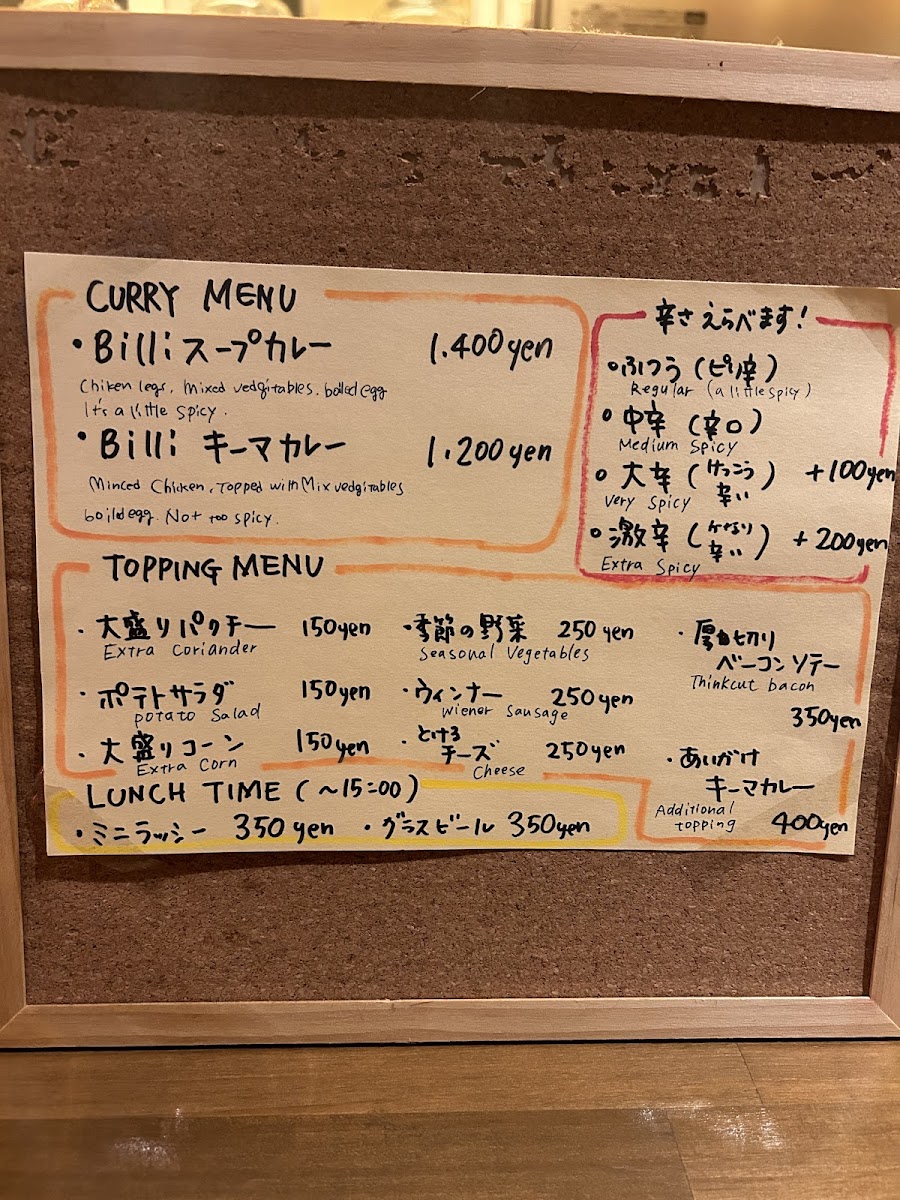 CURRY MENU
・Billi スープカレー 1.400yen
Chiken legs, mixed vedgitables, boiled egg
It's a little spicy.
・Billi キーマカレー 1.200yen
Minced Chicken, Topped with Mix vedgitables
boild egg. Not too spicy.
辛さえらべます!
ふつう (ピリ辛)
Regular (a little spicy)
中辛 (辛口)
Medium Spicy
大辛 (けっこう辛い) +100yen
Very Spicy
激辛 (かなり辛い) +200yen
Extra Spicy
TOPPING MENU
・大盛りパクチー 150yen
Extra Coriander
・ポテトサラダ 150yen
potato salad
・大盛りコーン 150yen
Extra Corn
・季節の野菜 250yen
Seasonal Vegetables
・ウィンナー 250yen
Wiener Sausage
・とけるチーズ 250yen
Cheese
・厚切り
ベーコンソテー
Thinkcut bacon
350yen
・あいがけ
キーマカレー
Additional
topping 400yen
LUNCH TIME (~15:00)
・ミニラッシー 350yen ・グラスビール 350yen